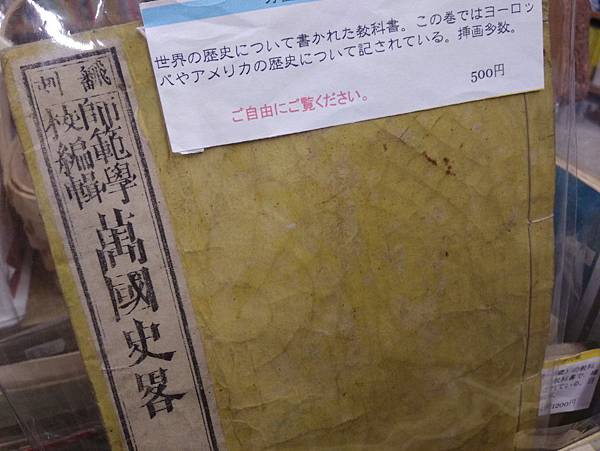 世界の歴史について書かれた教科書。この巻ではヨーロッ
パやアメリカの歴史について記されている。挿画多数。
500円
ご自由にご覧ください。
飜刻
師範學校編輯
萬國史畧
の教科
教科書で、
ている。
1200円